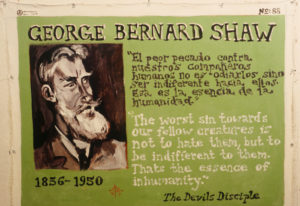 Nº: 55
GEORGE BERNARD SHAW
"El peor pecado contra
nuestros compañeros
humanos no es odiarlos, sino
ser indiferente hacia ellos.
Esa es la esencia de la
humanidad."
"The worst sin towards
our fellow creatures is
not to hate them, but to
be indifferent to them.
Thats the essence of
inhumanity."
1856-1950
The Devils Disciple